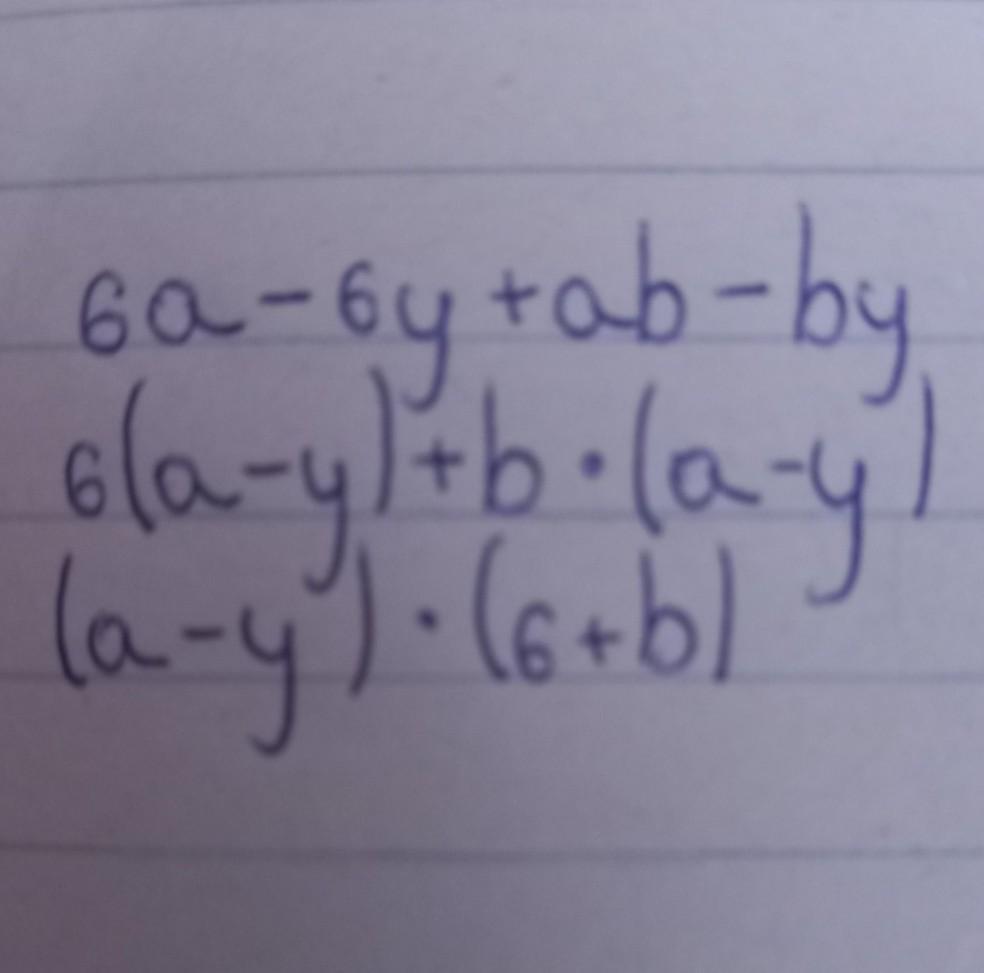 6a - 6y + ab - by
6(a - y) + b · (a - y)
(a - y) · (6 + b)